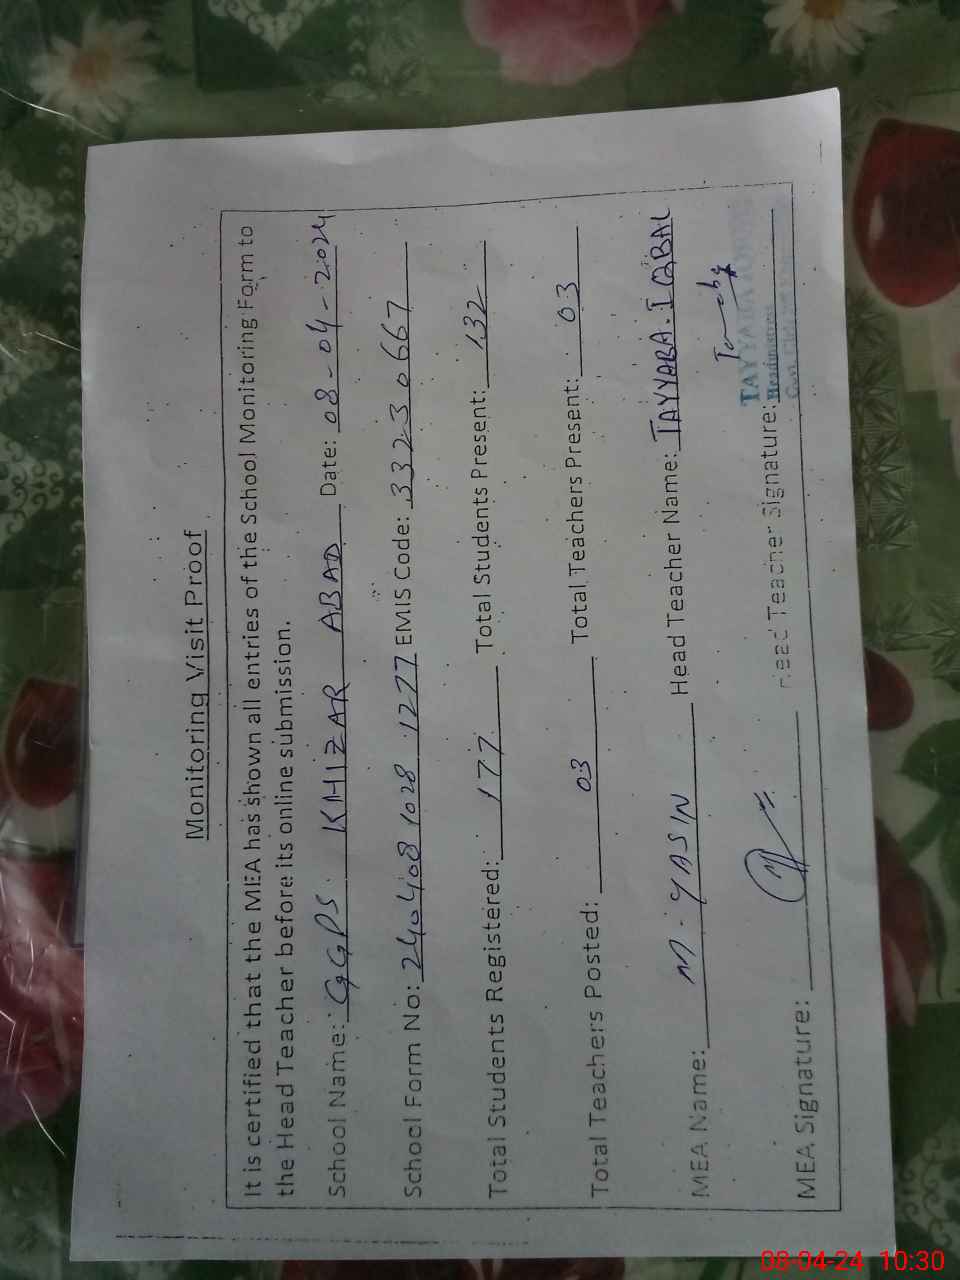 Monitoring Visit Proof
It is certified that the MEA has shown all entries of the School Monitoring Form to
the Head Teacher before its online submission.
School Name: GGPS KHIZAR ABAD Date: 08-04-2024
School Form No: 24040810281277 EMIS Code: 33230667
Total Students Registered: 177 Total Students Present: 132
Total Teachers Posted: 03 Total Teachers Present: 03
MEA Name: M. YASIN Head Teacher Name: TAYYABA IQBAL
MEA Signature: Head Teacher Signature:
TAYYABA
Headmistress
08-04-24 10:30